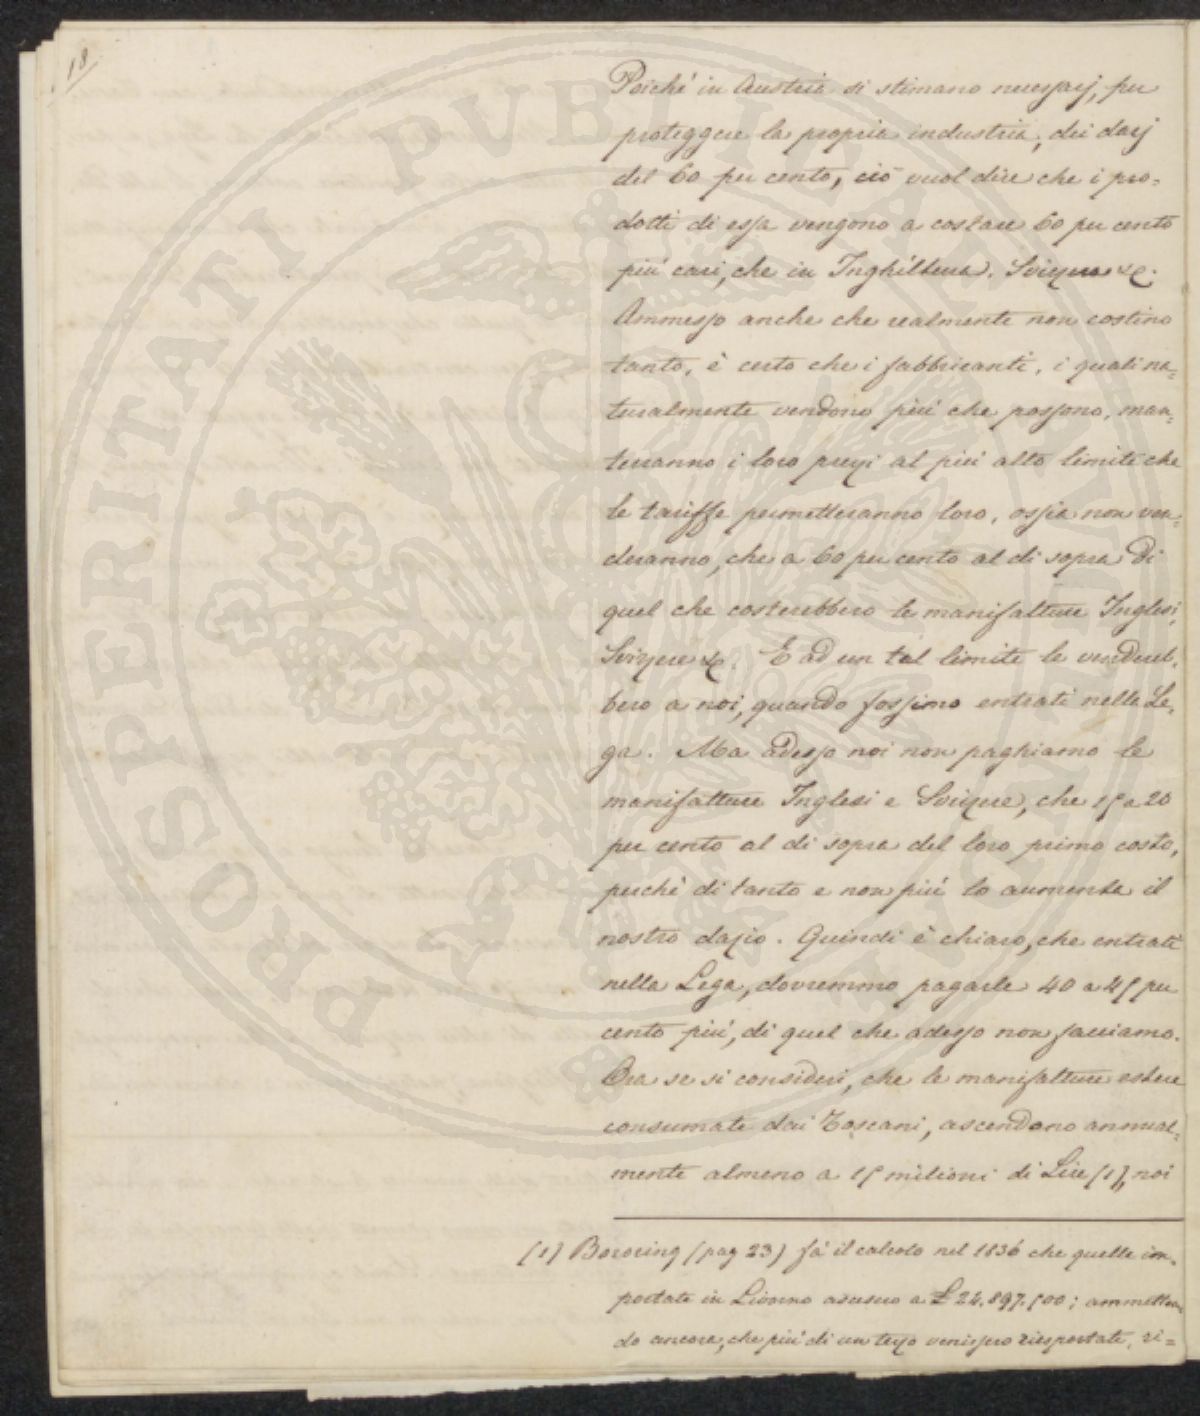 18
Poichè in Austria si stimano necessarj, per
proteggere la propria industria, dei dazj
del 60 per cento, ciò vuol dire che i pro=
dotti di essa vengono a costare 60 per cento
più cari, che in Inghilterra, Svizzera &c.
Ammesso anche che realmente non costino
tanto, è certo che i fabbricanti, i quali na=
turalmente vendono più che possono, man=
terranno i loro prezzi al più alto limite che
le tariffe permetteranno loro, ossia non ven=
deranno, che a 60 per cento al di sopra di
quel che costerebbero le manifatture Inglesi,
Svizzere &c. E ad un tal limite le vendereb=
bero a noi, quando fossimo entrati nella Le=
ga. Ma adesso noi non paghiamo le
manifatture Inglesi e Svizzere, che 15 a 20
per cento al di sopra del loro primo costo,
perchè di tanto e non più lo aumenta il
nostro dazio. Quindi è chiaro, che entrati
nella Lega, dovremmo pagarle 40 a 45 per
cento più, di quel che adesso non facciamo.
Ora se si consideri, che le manifatture estere
consumate dai Toscani, ascendono annual=
mente almeno a 15 milioni di Lire (1), noi
(1) Bowring (pag 23) fà il calcolo nel 1836 che quelle im=
portate in Livorno ascesero a £ 24.897.500; ammetten=
do ancora, che più di un terzo venissero riesportate, ri=
PROSPERITATI PUBLICAE AUGENDAE